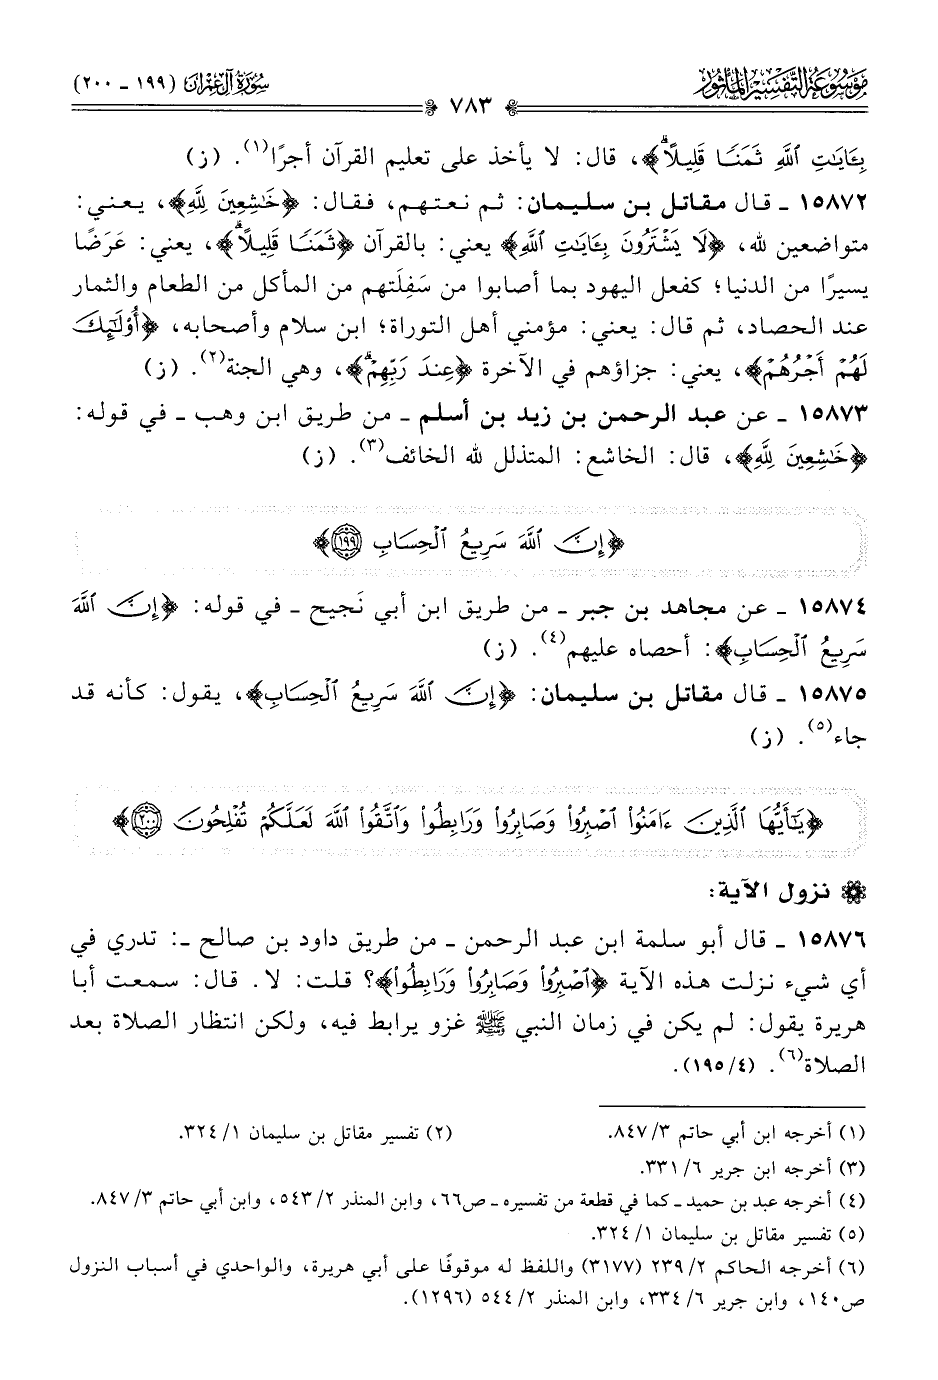 موسوعة التفسير المأثور
سورة آل عمران (١٩٩ - ٢٠٠)
٧٨٣
بِـَٔايَـٰتِ ٱللَّهِ ثَمَنًا قَلِيلًاۗ﴾، قال: لا يأخذ على تعليم القرآن أجرًا(١). (ز)
١٥٨٧٢ - قال مقاتل بن سليمان: ثم نعتهم، فقال: ﴿خَـٰشِعِينَ لِلَّهِ﴾، يعني:
متواضعين لله، ﴿لَا يَشْتَرُونَ بِـَٔايَـٰتِ ٱللَّهِ﴾ يعني: بالقرآن ﴿ثَمَنًا قَلِيلًاۗ﴾، يعني: عَرَضًا
يسيرًا من الدنيا؛ كفعل اليهود بما أصابوا من سَفِلَتهم من المأكل من الطعام والثمار
عند الحصاد، ثم قال: يعني: مؤمني أهل التوراة؛ ابن سلام وأصحابه، ﴿أُو۟لَـٰٓئِكَ
لَهُمْ أَجْرُهُمْ﴾، يعني: جزاؤهم في الآخرة ﴿عِندَ رَبِّهِمْۗ﴾، وهي الجنة(٢). (ز)
١٥٨٧٣ - عن عبد الرحمن بن زيد بن أسلم - من طريق ابن وهب - في قوله:
﴿خَـٰشِعِينَ لِلَّهِ﴾، قال: الخاشع: المتذلل لله الخائف(٣). (ز)
﴿إِنَّ ٱللَّهَ سَرِيعُ ٱلْحِسَابِ ١٩٩﴾
١٥٨٧٤ - عن مجاهد بن جبر - من طريق ابن أبي نَجيح - في قوله: ﴿إِنَّ ٱللَّهَ
سَرِيعُ ٱلْحِسَابِ﴾: أحصاه عليهم(٤). (ز)
١٥٨٧٥ - قال مقاتل بن سليمان: ﴿إِنَّ ٱللَّهَ سَرِيعُ ٱلْحِسَابِ﴾، يقول: كأنه قد
جاء(٥). (ز)
﴿يَـٰٓأَيُّهَا ٱلَّذِينَ ءَامَنُوا۟ ٱصْبِرُوا۟ وَصَابِرُوا۟ وَرَابِطُوا۟ وَٱتَّقُوا۟ ٱللَّهَ لَعَلَّكُمْ تُفْلِحُونَ ٢٠٠﴾
نزول الآية:
١٥٨٧٦ - قال أبو سلمة ابن عبد الرحمن - من طريق داود بن صالح -: تدري في
أي شيء نزلت هذه الآية ﴿ٱصْبِرُوا۟ وَصَابِرُوا۟ وَرَابِطُوا۟﴾؟ قلت: لا. قال: سمعت أبا
هريرة يقول: لم يكن في زمان النبي ﷺ غزو يرابط فيه، ولكن انتظار الصلاة بعد
الصلاة(٦). (١٩٥/٤).
(١) أخرجه ابن أبي حاتم ٨٤٧/٣. (٢) تفسير مقاتل بن سليمان ٣٢٤/١.
(٣) أخرجه ابن جرير ٣٣١/٦.
(٤) أخرجه عبد بن حميد - كما في قطعة من تفسيره - ص٦٦، وابن المنذر ٥٤٣/٢، وابن أبي حاتم ٨٤٧/٣.
(٥) تفسير مقاتل بن سليمان ٣٢٤/١.
(٦) أخرجه الحاكم ٢٣٩/٢ (٣١٧٧) واللفظ له موقوفًا على أبي هريرة، والواحدي في أسباب النزول
ص١٤٠، وابن جرير ٣٣٤/٦، وابن المنذر ٥٤٤/٢ (١٢٩٦).